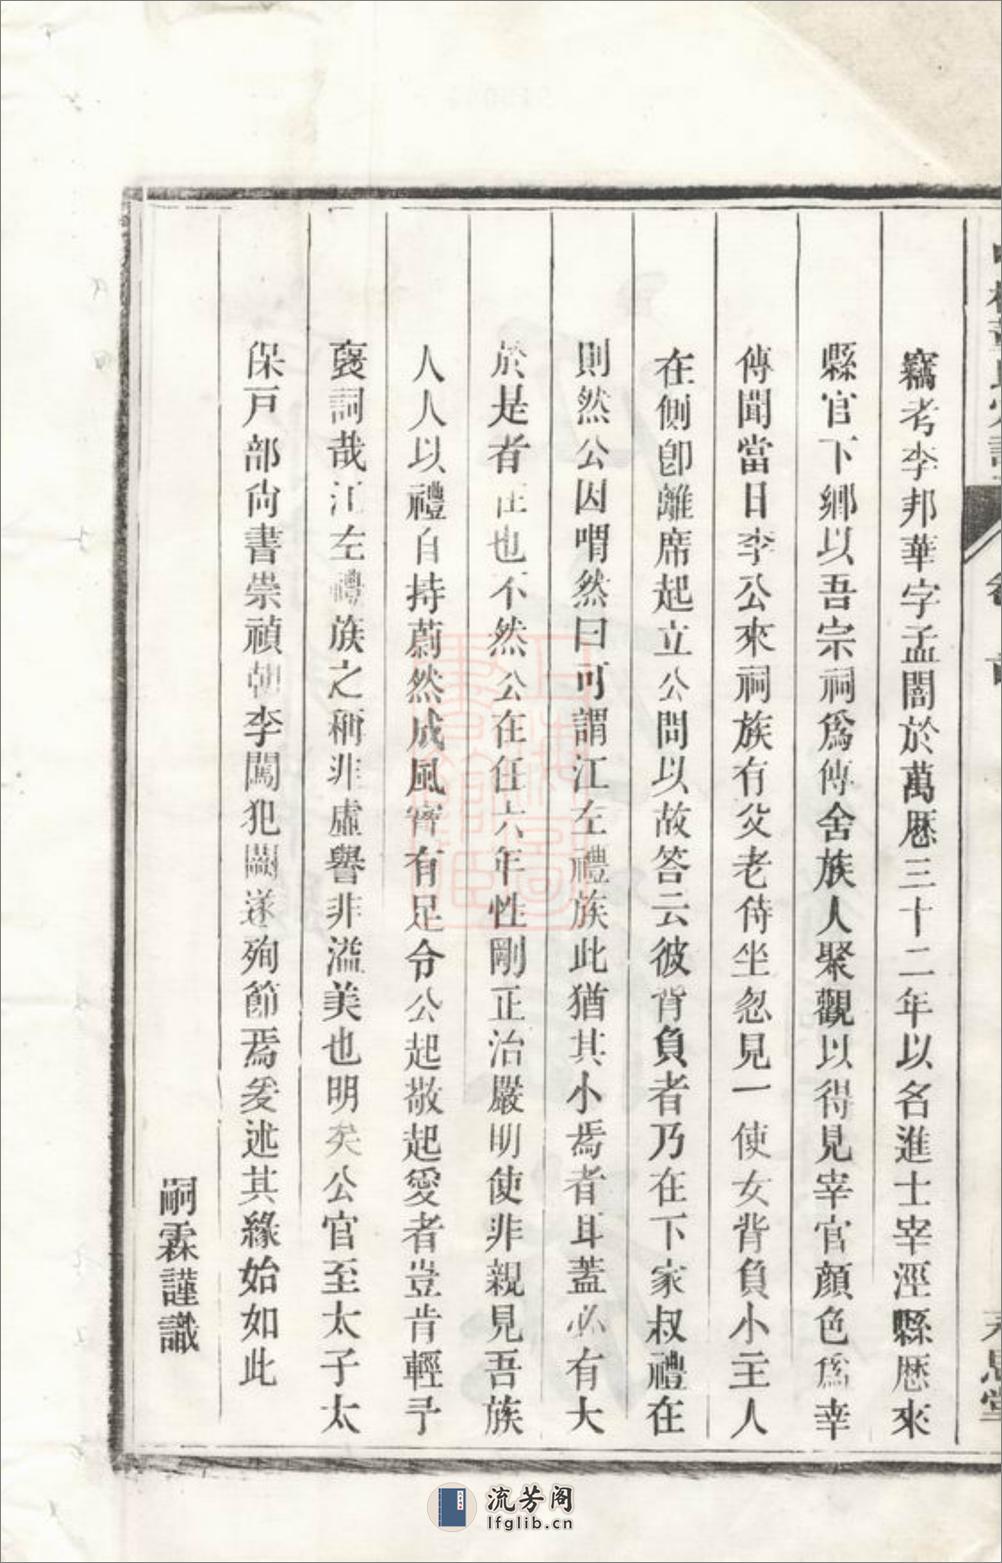 竊考李邦華字孟闇於萬厯三十二年以名進士宰涇縣厯來
縣官下鄉以吾宗祠爲傳舍族人聚觀以得見宰官顔色爲幸
傳聞當日李公來祠族有父老侍坐忽見一使女背負小主人
在側卽離席起立公問以故答云彼背負者乃在下家叔禮在
則然公因喟然曰可謂江左禮族此猶其小焉者耳蓋必有大
於是者在也不然公在任六年性剛正治嚴明使非親見吾族
人人以禮自持蔚然成風實有足令公起敬起愛者豈肯輕予
襃詞哉江左禮族之稱非虛譽非溢美也明矣公官至太子太
保戸部尙書崇禎朝李闖犯闕遂殉節焉爰述其緣始如此
嗣霖謹識
思堂
流芳阁
lfglib.cn